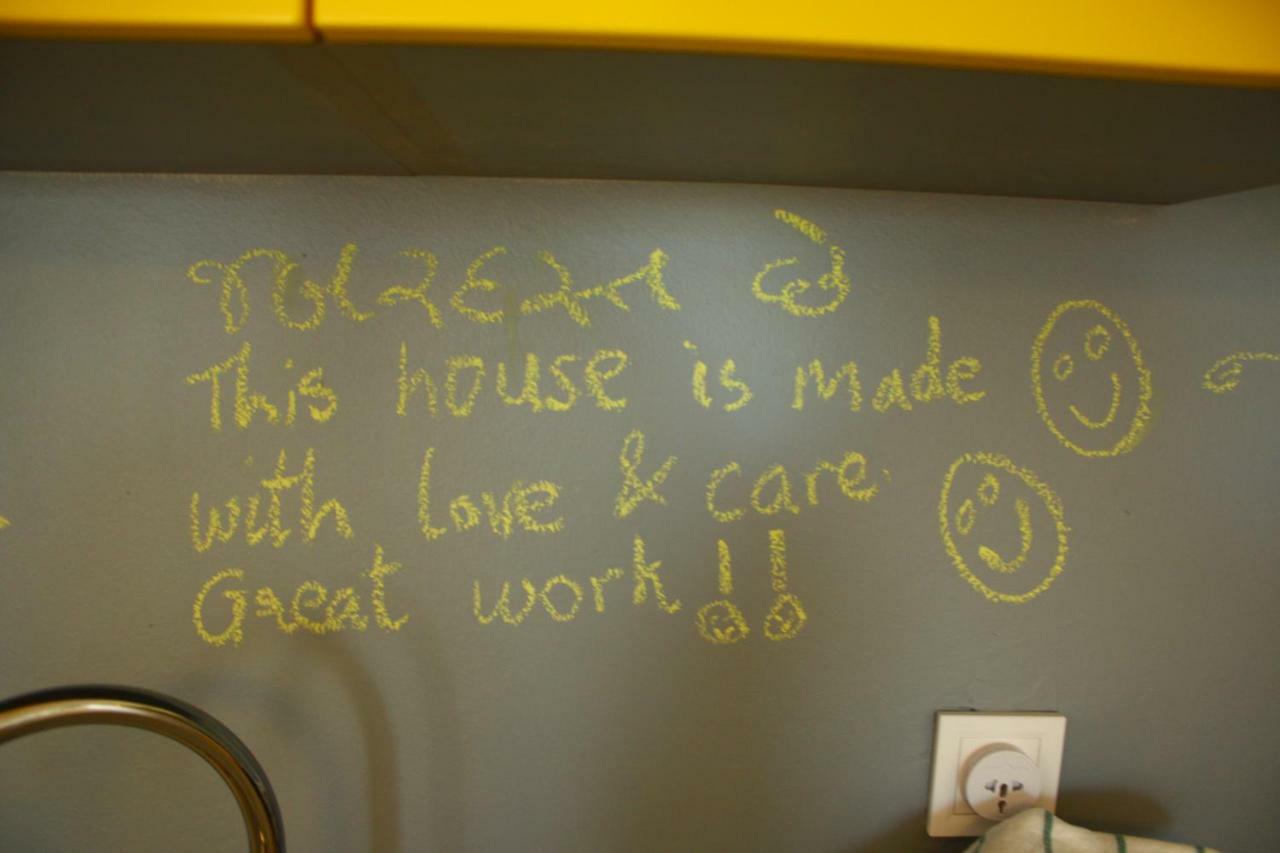 This house is made
with love & care.
Great work!!